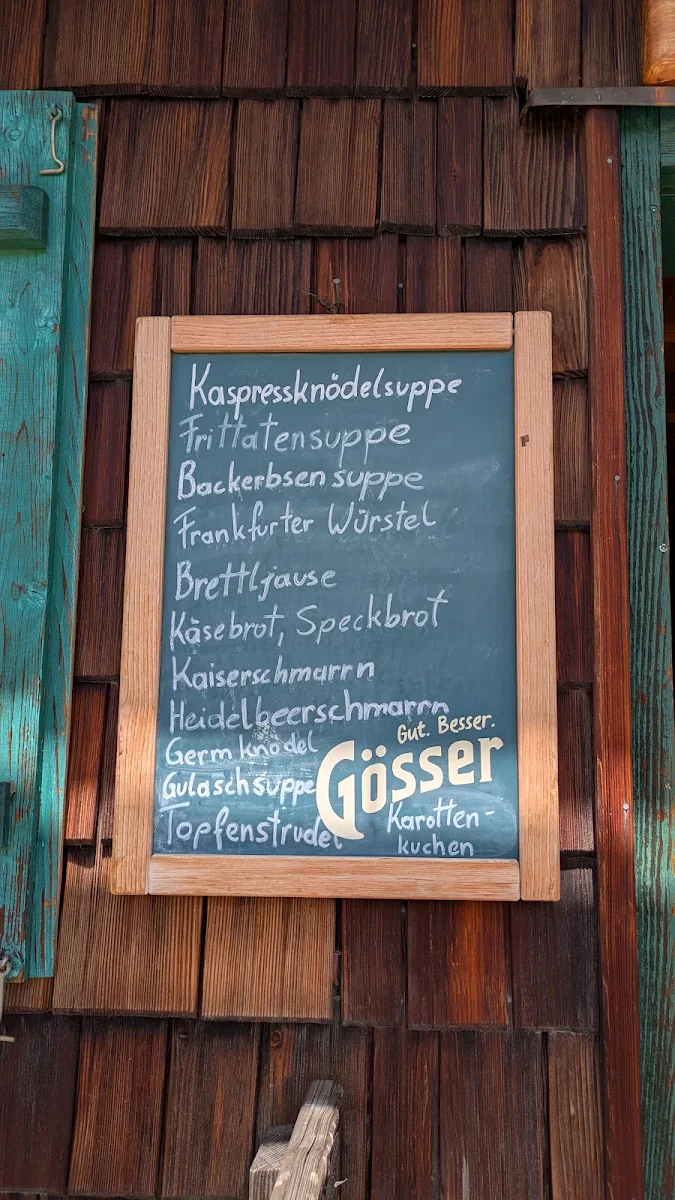 Kaspressknödelsuppe
Frittatensuppe
Backerbsen suppe
Frankfurter Würstel
Brettljause
Käsebrot, Speckbrot
Kaiserschmarrn
Heidelbeerschmarrn
Germknödel
Gulaschsuppe
Topfenstrudel
Gut. Besser.
Gösser
Karotten-
kuchen